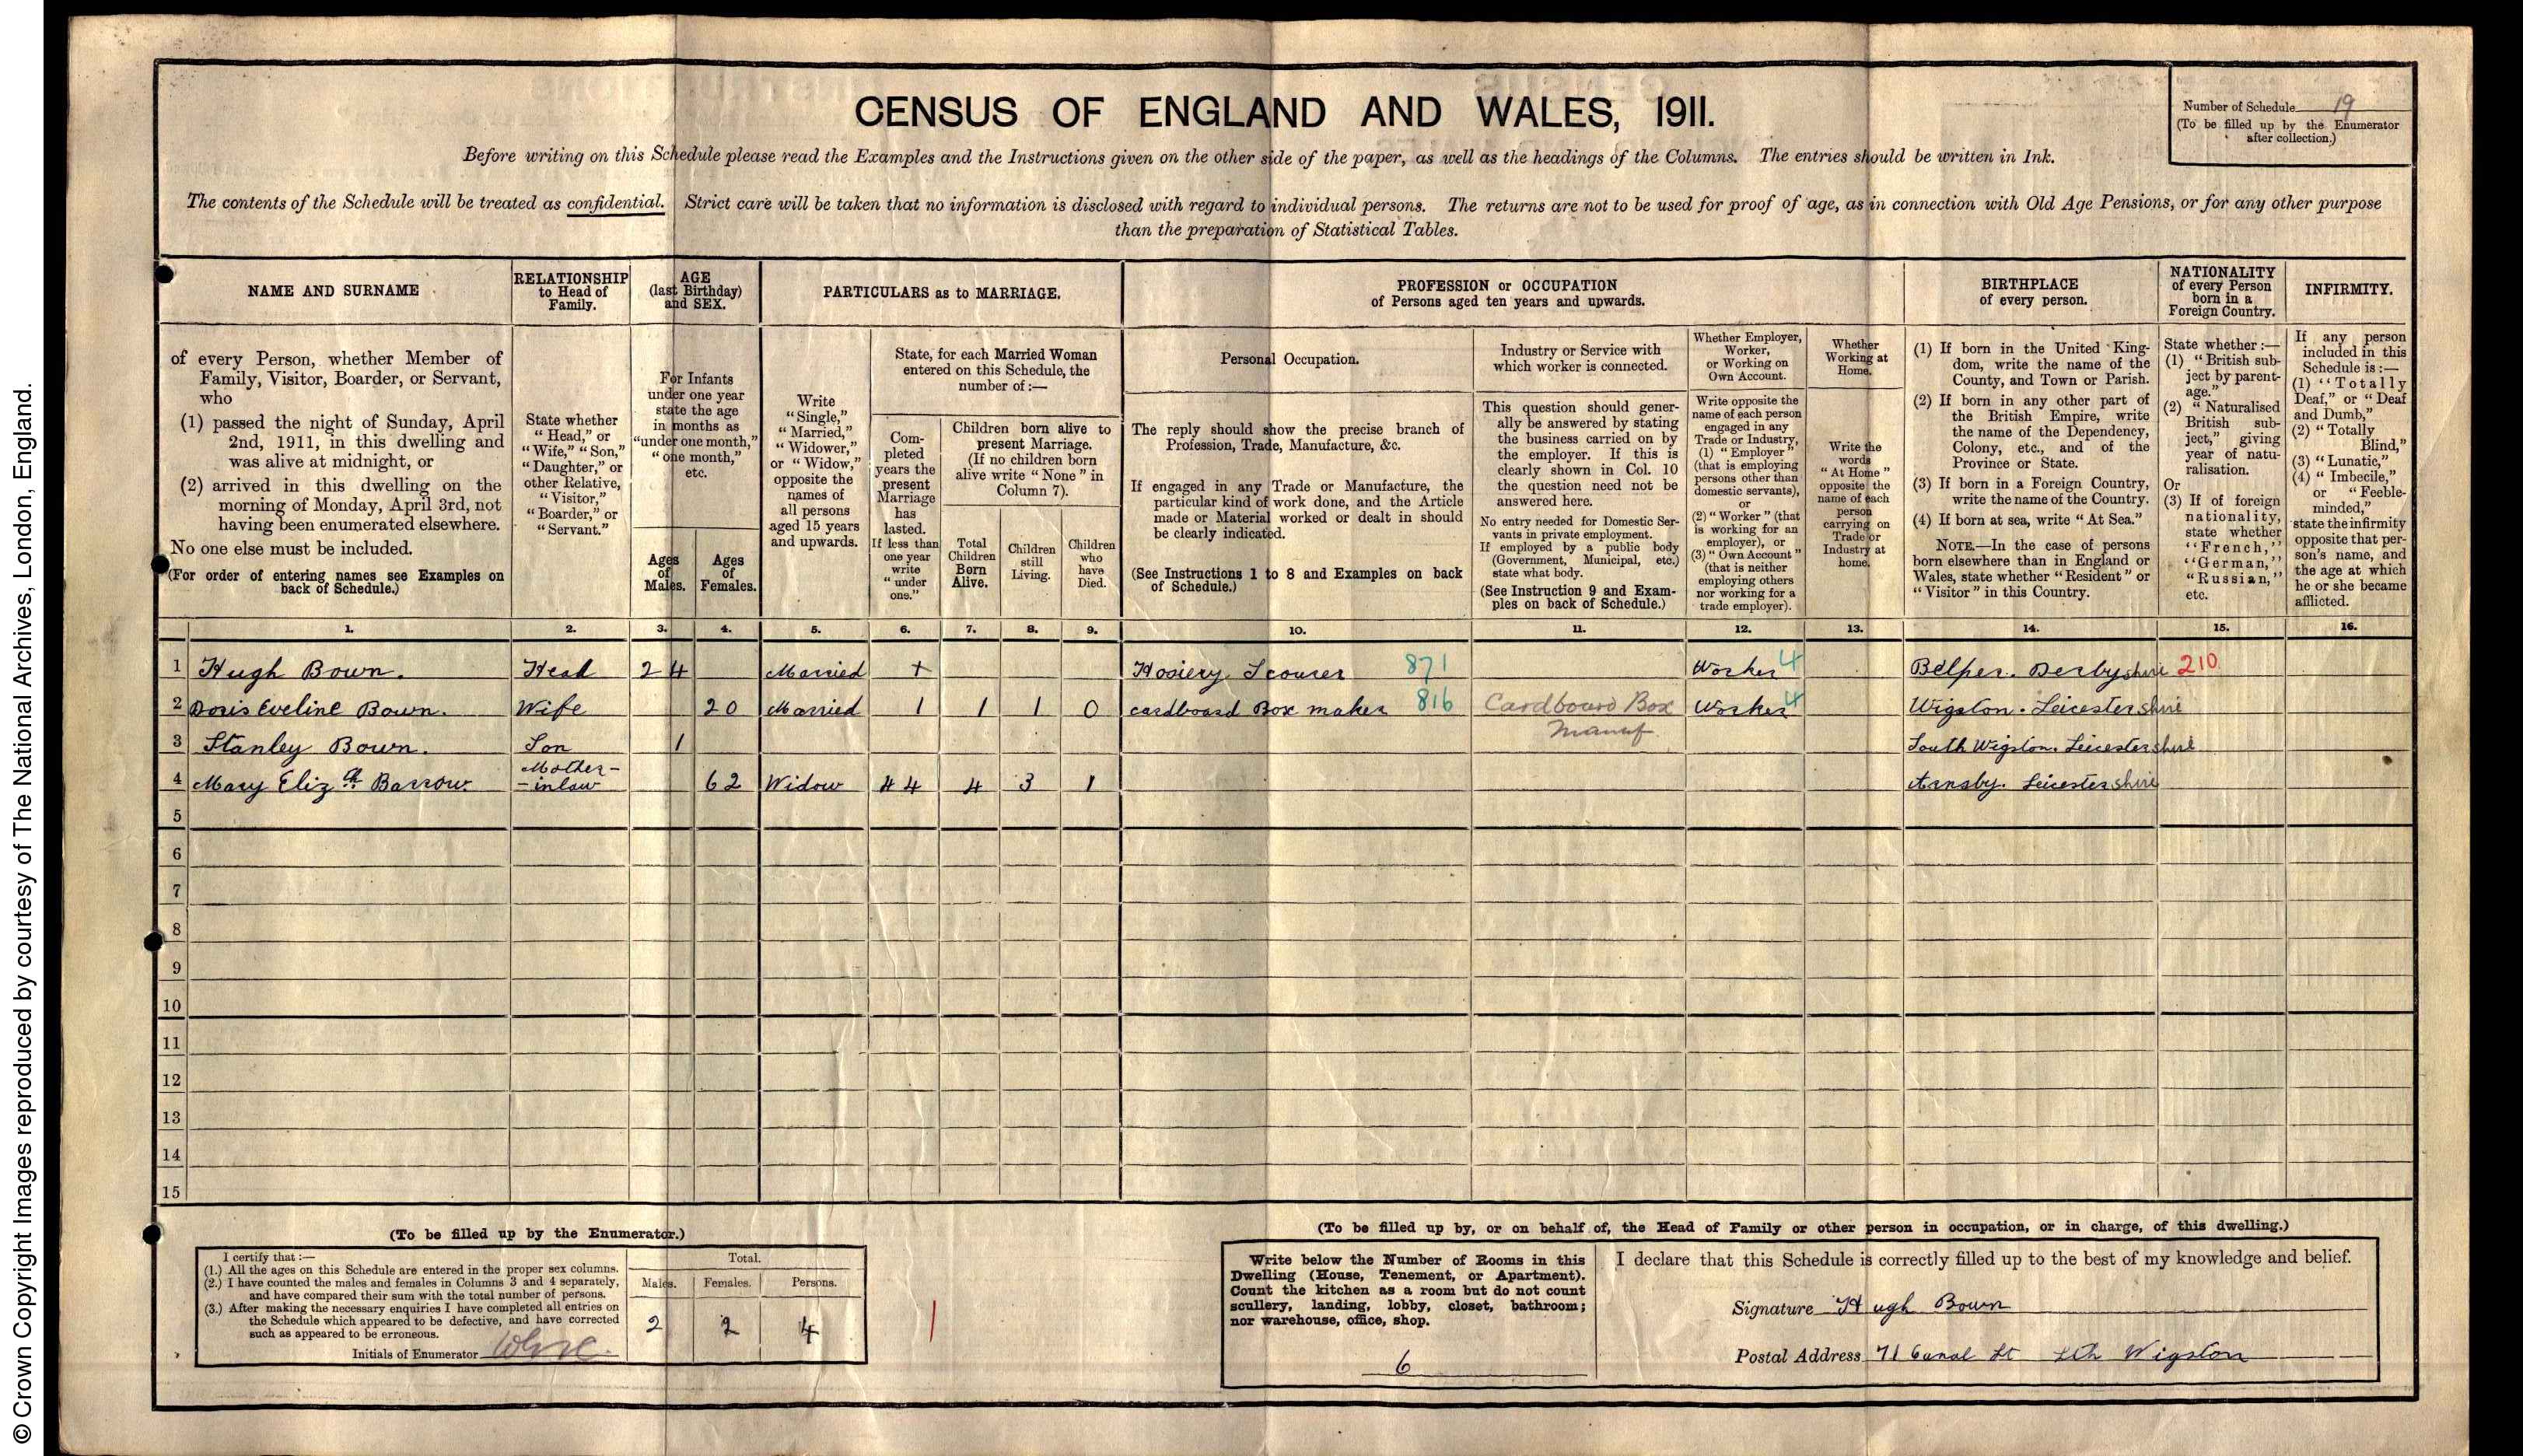 © Crown Copyright Images reproduced by courtesy of The National Archives, London, England.
CENSUS OF ENGLAND AND WALES, 1911.
Number of Schedule 19
(To be filled up by the Enumerator
after collection.)
Before writing on this Schedule please read the Examples and the Instructions given on the other side of the paper, as well as the headings of the Columns. The entries should be written in Ink.
The contents of the Schedule will be treated as confidential. Strict care will be taken that no information is disclosed with regard to individual persons. The returns are not to be used for proof of age, as in connection with Old Age Pensions, or for any other purpose
than the preparation of Statistical Tables.
NAME AND SURNAME
of every Person, whether Member of
Family, Visitor, Boarder, or Servant,
who
(1) passed the night of Sunday, April
2nd, 1911, in this dwelling and
was alive at midnight, or
(2) arrived in this dwelling on the
morning of Monday, April 3rd, not
having been enumerated elsewhere.
No one else must be included.
(For order of entering names see Examples on
back of Schedule.)
RELATIONSHIP
to Head of
Family.
State whether
"Head," or
"Wife," "Son,"
"Daughter," or
other Relative,
"Visitor,"
"Boarder," or
"Servant."
AGE
(last Birthday)
and SEX.
For Infants
under one year
state the age
in months as
"under one month,"
"one month,"
etc.
Ages
of
Males.
Ages
of
Females.
PARTICULARS as to MARRIAGE.
Write
"Single,"
"Married,"
"Widower,"
or "Widow,"
opposite the
names of
all persons
aged 15 years
and upwards.
State, for each Married Woman
entered on this Schedule, the
number of :—
Com-
pleted
years the
present
Marriage
has
lasted.
If less than
one year
write
"under
one."
Children born alive to
present Marriage.
(If no children born
alive write "None" in
Column 7).
Total
Children
Born
Alive.
Children
still
Living.
Children
who
have
Died.
PROFESSION or OCCUPATION
of Persons aged ten years and upwards.
Personal Occupation.
The reply should show the precise branch of
Profession, Trade, Manufacture, &c.
If engaged in any Trade or Manufacture, the
particular kind of work done, and the Article
made or Material worked or dealt in should
be clearly indicated.
(See Instructions 1 to 8 and Examples on back
of Schedule.)
Industry or Service with
which worker is connected.
This question should gener-
ally be answered by stating
the business carried on by
the employer. If this is
clearly shown in Col. 10
the question need not be
answered here.
No entry needed for Domestic Ser-
vants in private employment.
If employed by a public body
(Government, Municipal, etc.)
state what body.
(See Instruction 9 and Exam-
ples on back of Schedule.)
Whether Employer,
Worker,
or Working on
Own Account.
Write opposite the
name of each person
engaged in any
Trade or Industry,
(1) "Employer"
(that is employing
persons other than
domestic servants),
or
(2) "Worker" (that
is working for an
employer), or
(3) "Own Account"
(that is neither
employing others
nor working for a
trade employer).
Whether
Working at
Home.
Write the
words
"At Home"
opposite the
name of each
person
carrying on
Trade or
Industry at
home.
BIRTHPLACE
of every person.
(1) If born in the United King-
dom, write the name of the
County, and Town or Parish.
(2) If born in any other part of
the British Empire, write
the name of the Dependency,
Colony, etc., and of the
Province or State.
(3) If born in a Foreign Country,
write the name of the Country.
(4) If born at sea, write "At Sea."
NOTE.—In the case of persons
born elsewhere than in England or
Wales, state whether "Resident" or
"Visitor" in this Country.
NATIONALITY
of every Person
born in a
Foreign Country.
State whether :—
(1) "British sub-
ject by parent-
age."
(2) "Naturalised
British sub-
ject," giving
year of natu-
ralisation.
Or
(3) If of foreign
nationality,
state whether
"French,"
"German,"
"Russian,"
etc.
INFIRMITY.
If any person
included in this
Schedule is :—
(1) "Totally
Deaf," or "Deaf
and Dumb,"
(2) "Totally
Blind,"
(3) "Lunatic,"
(4) "Imbecile,"
or "Feeble-
minded,"
state the infirmity
opposite that per-
son's name, and
the age at which
he or she became
afflicted.
1. 2. 3. 4. 5. 6. 7. 8. 9. 10. 11. 12. 13. 14. 15. 16.
1 Hugh Bown. Head 24 Married + Hosiery Scourer 871 Worker 4 Belper. Derbyshire 210
2 Doris Eveline Bown. Wife 20 Married 1 1 1 0 cardboard Box maker 816 Cardboard Box Manuf Worker 4 Wigston. Leicestershire
3 Stanley Bown. Son 1 South Wigston. Leicestershire
4 Mary Elizth Barrow. Mother-in law 62 Widow 44 4 3 1 Arnsby. Leicestershire
5
6
7
8
9
10
11
12
13
14
15
(To be filled up by the Enumerator.)
I certify that :—
(1.) All the ages on this Schedule are entered in the proper sex columns.
(2.) I have counted the males and females in Columns 3 and 4 separately,
and have compared their sum with the total number of persons.
(3.) After making the necessary enquiries I have completed all entries on
the Schedule which appeared to be defective, and have corrected
such as appeared to be erroneous.
Initials of Enumerator
Total.
Males. Females. Persons.
2 2 4
(To be filled up by, or on behalf of, the Head of Family or other person in occupation, or in charge, of this dwelling.)
Write below the Number of Rooms in this
Dwelling (House, Tenement, or Apartment).
Count the kitchen as a room but do not count
scullery, landing, lobby, closet, bathroom;
nor warehouse, office, shop.
6
I declare that this Schedule is correctly filled up to the best of my knowledge and belief.
Signature Hugh Bown
Postal Address 71 Canal St Sth Wigston